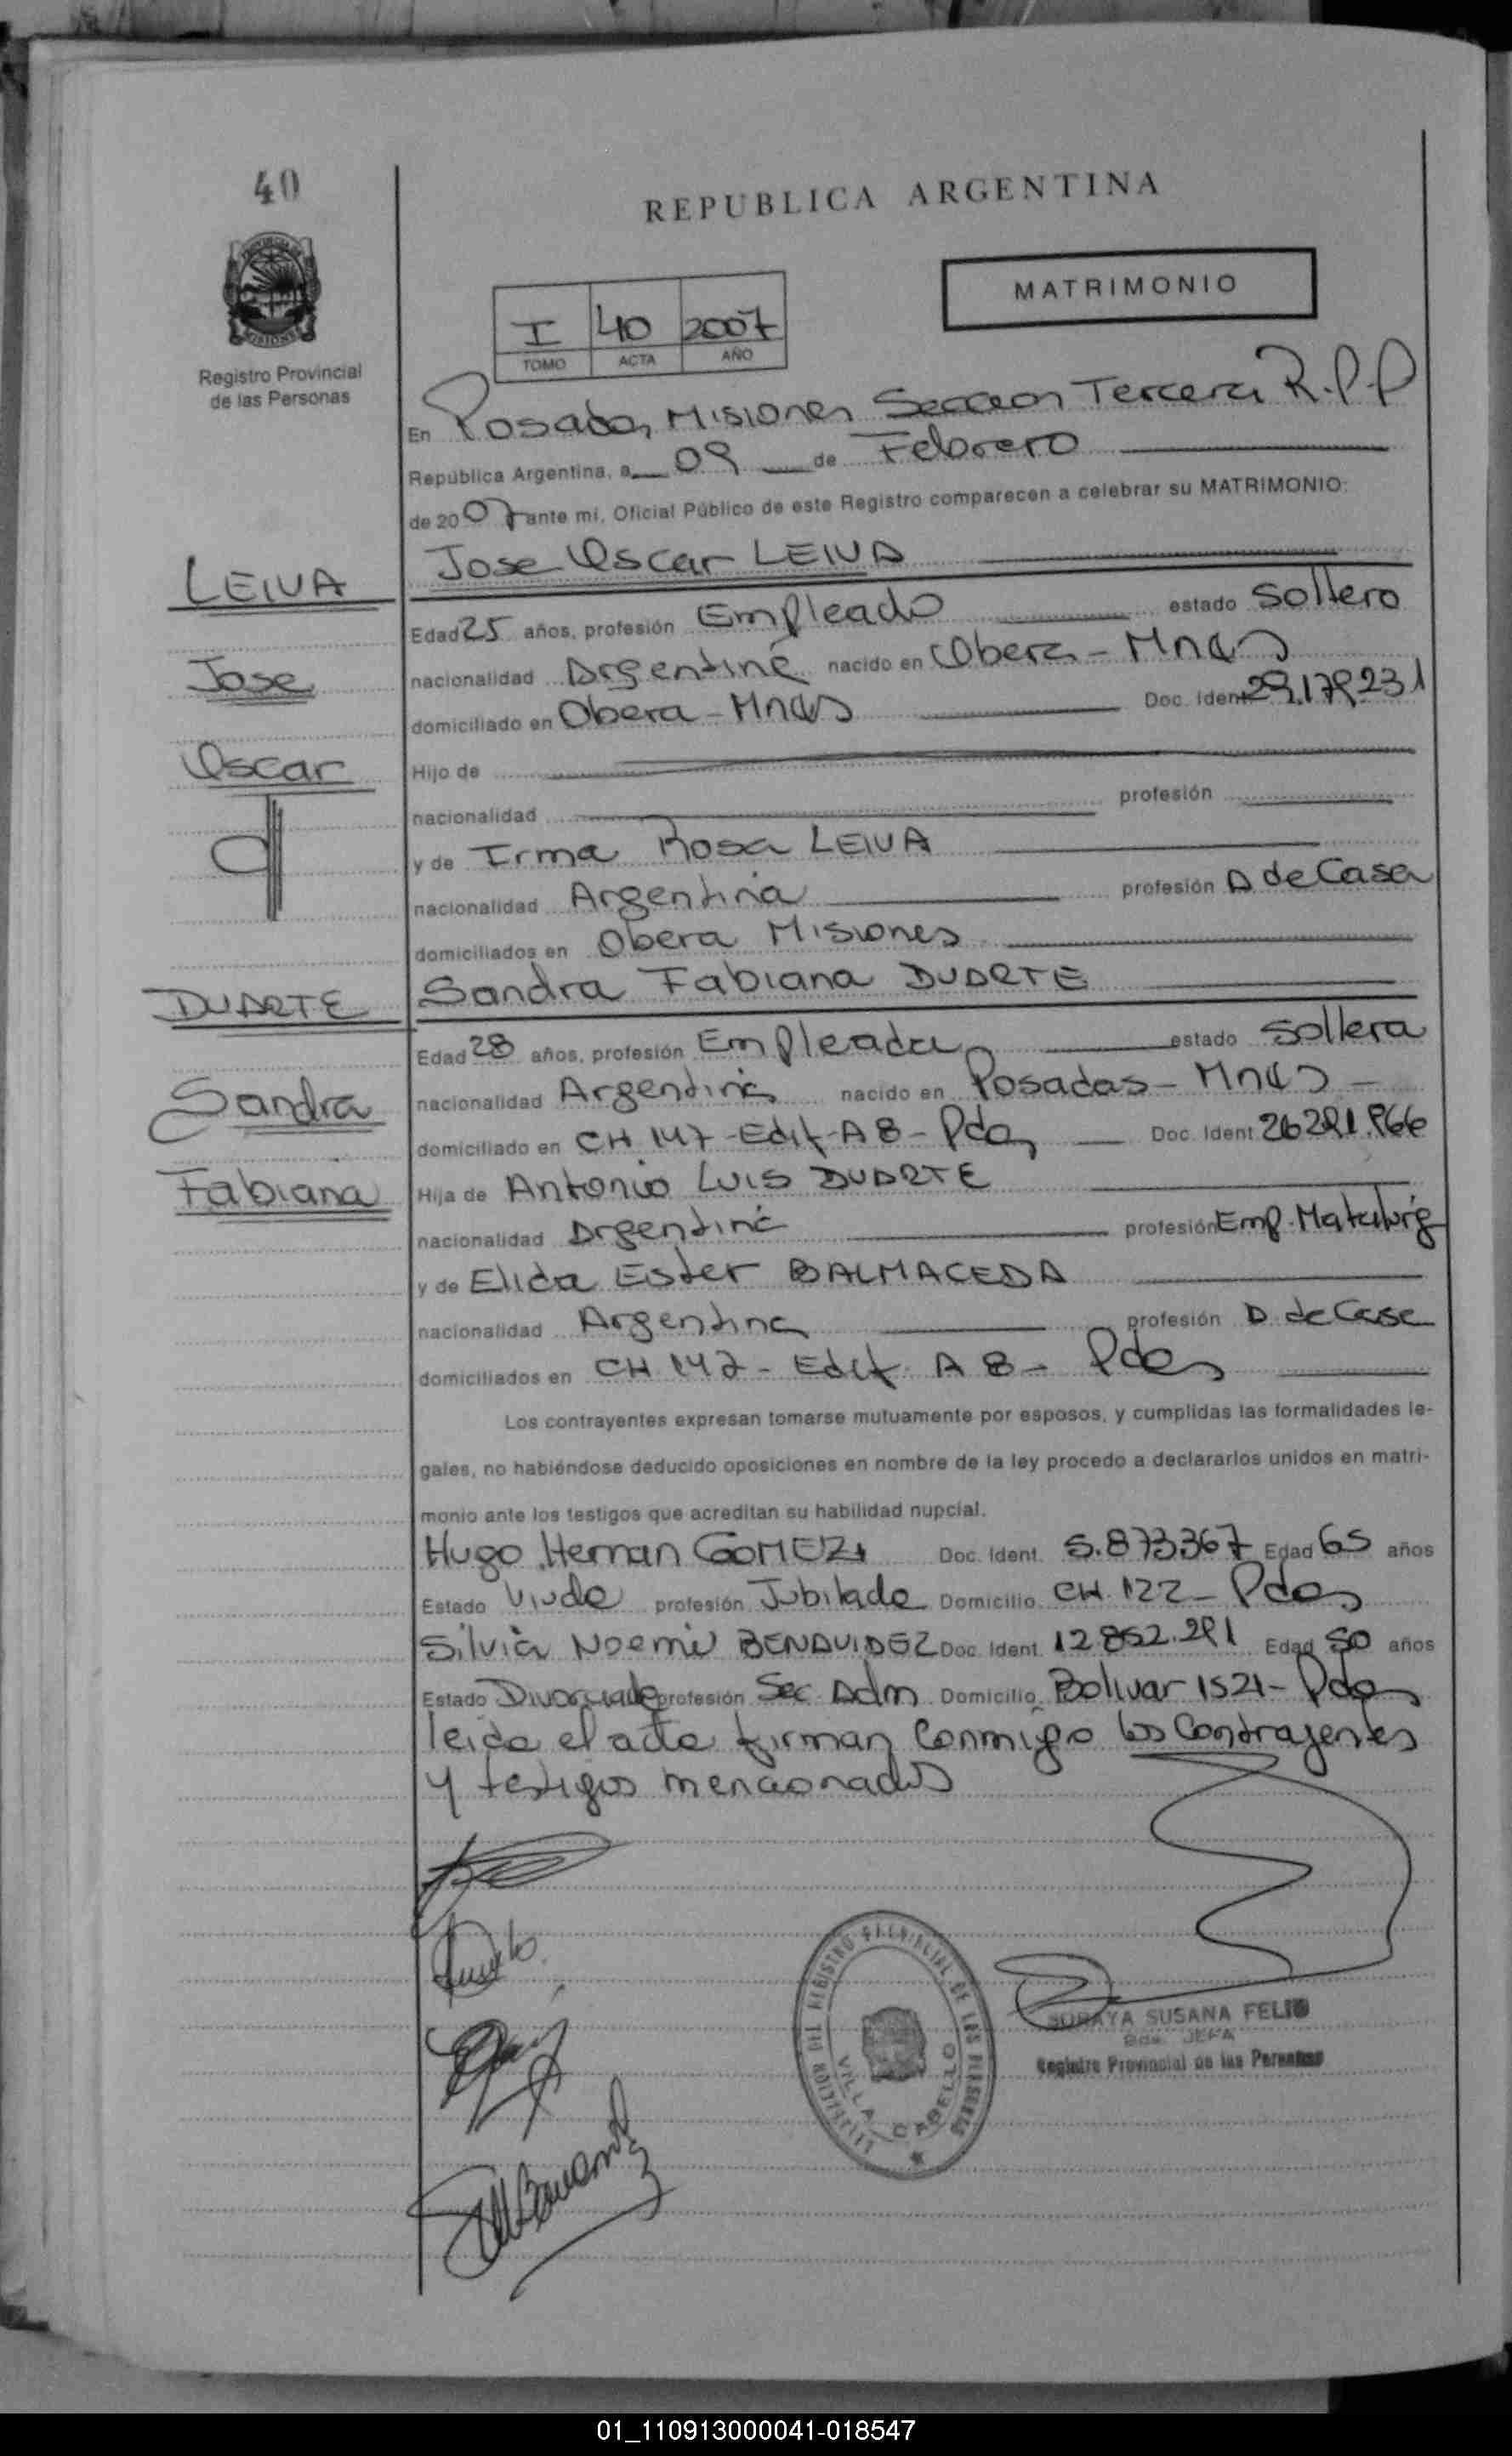 40
REPUBLICA ARGENTINA
MATRIMONIO
I 40 2007
TOMO ACTA AÑO
Registro Provincial
de las Personas
En Posadas, Misiones Seccion Tercera R.P.P
República Argentina, a 09 de Febrero
de 2007 ante mi, Oficial Público de este Registro comparecen a celebrar su MATRIMONIO:
LEIVA
Jose Oscar LEIVA
Edad 25 años, profesión Empleado estado Soltero
Jose
nacionalidad Argentina nacido en Obera - Mnes
domiciliado en Obera - Mnes Doc. Ident 29.179.231
Oscar
Hijo de
nacionalidad profesión
y de Irma Rosa LEIVA
nacionalidad Argentina profesión A de Casa
domiciliados en Obera Misiones
DUARTE
Sandra Fabiana DUARTE
Edad 28 años, profesión Empleada estado Soltera
Sandra
nacionalidad Argentina nacido en Posadas - Mnes
domiciliado en CH 147 - Edif - A 8 - Pdas Doc. Ident 26.291.866
Fabiana
Hija de Antonio Luis DUARTE
nacionalidad Argentina profesión Emp.
y de Elida Ester BALMACEDA
nacionalidad Argentina profesión A. de Casa
domiciliados en CH 147 - Edif. A 8 - Pdas
Los contrayentes expresan tomarse mutuamente por esposos, y cumplidas las formalidades le-
gales, no habiéndose deducido oposiciones en nombre de la ley procedo a declararlos unidos en matri-
monio ante los testigos que acreditan su habilidad nupcial.
Hugo Hernan GOMEZ Doc. Ident. 5.873367 Edad 65 años
Estado Viudo profesión Jubilado Domicilio CH. 122 - Pdas
Silvia Noemi BENAVIDEZ Doc. Ident. 12.852.291 Edad 50 años
Estado Divorciada profesión Sec. Adm Domicilio Bolivar 1521 - Pdas
leida el acta firman conmigo los Contrayentes
y testigos mencionados
REGISTRO PROVINCIAL DE LAS PERSONAS
VILLA CABELLO
SORAYA SUSANA FELIU
JEFA
Registro Provincial de las Personas
01_110913000041-018547